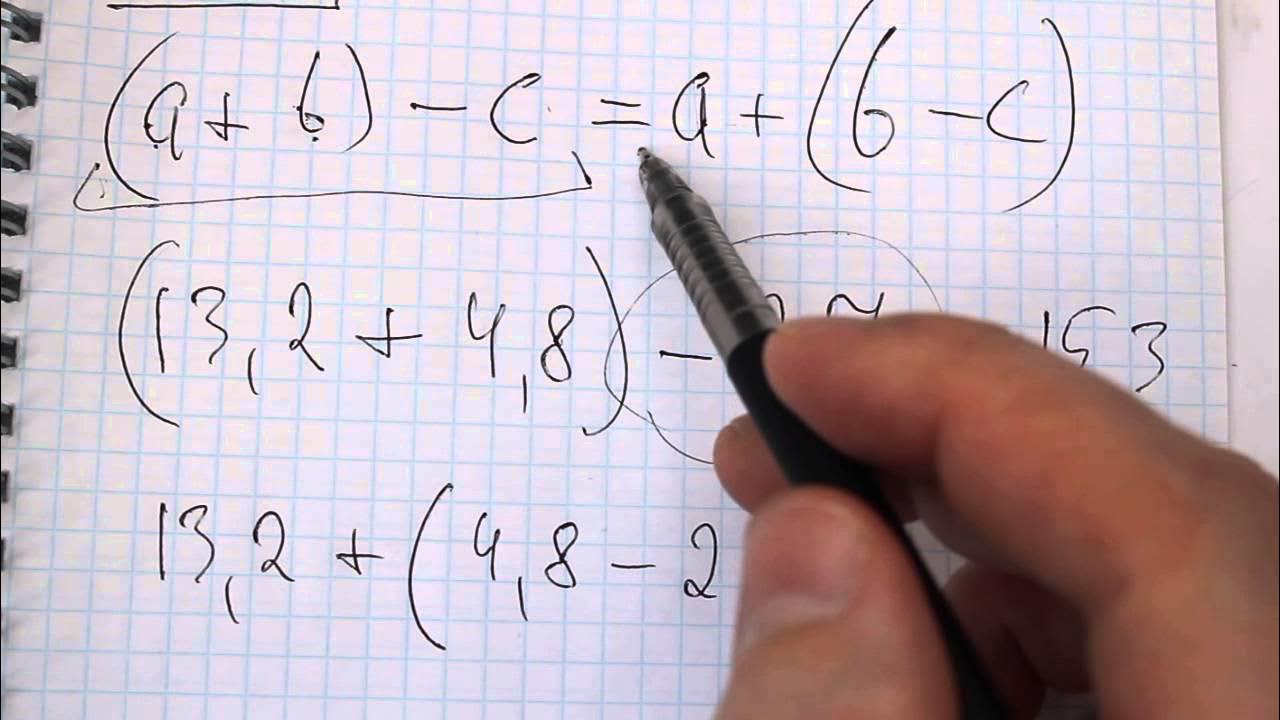 (a + b) - c = a + (b - c)
(13,2 + 4,8) - 153
13,2 + (4,8 - 2